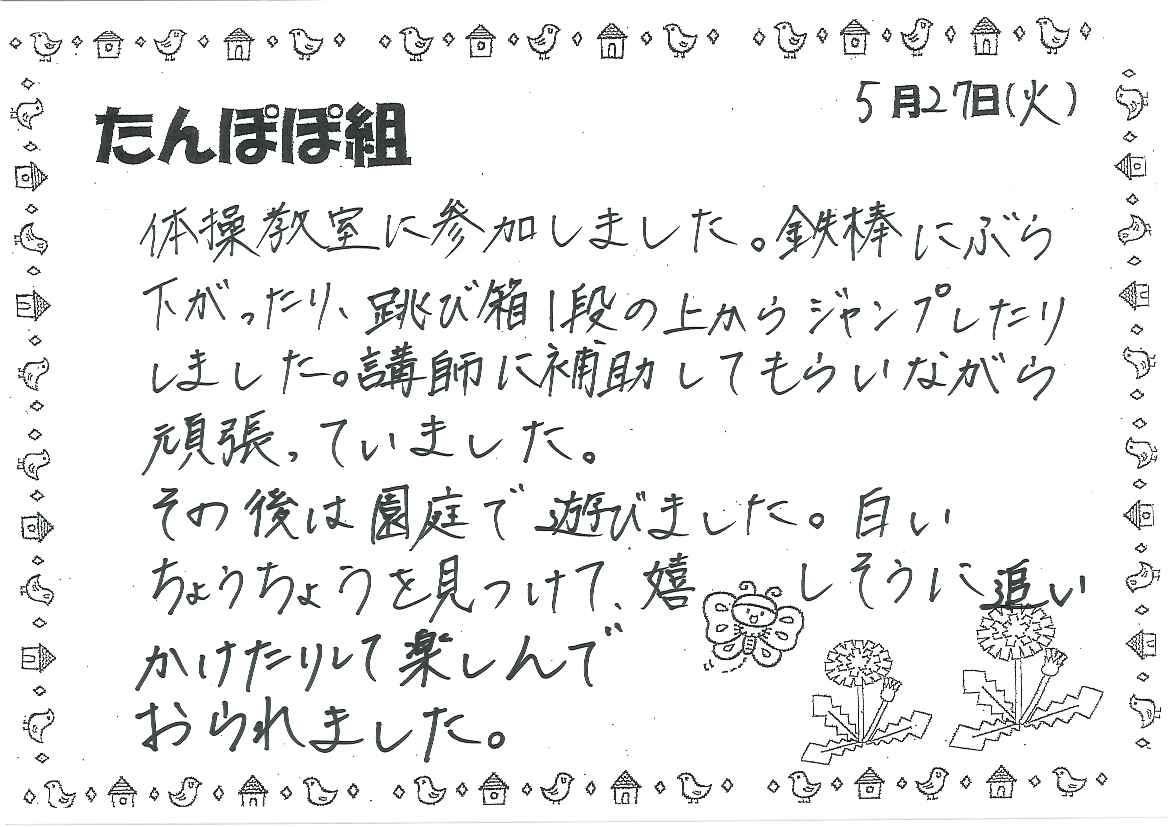 5月27日(火)
たんぽぽ組
体操教室に参加しました。鉄棒にぶら
下がったり、跳び箱1段の上からジャンプしたり
しました。講師に補助してもらいながら
頑張っていました。
その後は園庭で遊びました。白い
ちょうちょうを見つけて、嬉しそうに追い
かけたりして楽しんで
おられました。